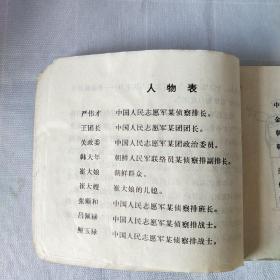 人物表
严伟才 中国人民志愿军某侦察排长。
王团长 中国人民志愿军某团团长。
关政委 中国人民志愿军某团政治委员。
韩大年 朝鲜人民军联络员某侦察排副排长。
崔大娘 朝鲜群众。
崔大嫂 崔大娘的儿媳。
张顺和 中国人民志愿军某侦察排班长。
吕佩禄 中国人民志愿军某侦察排战士。
鲍玉禄 中国人民志愿军某侦察排战士。
中
金
朝